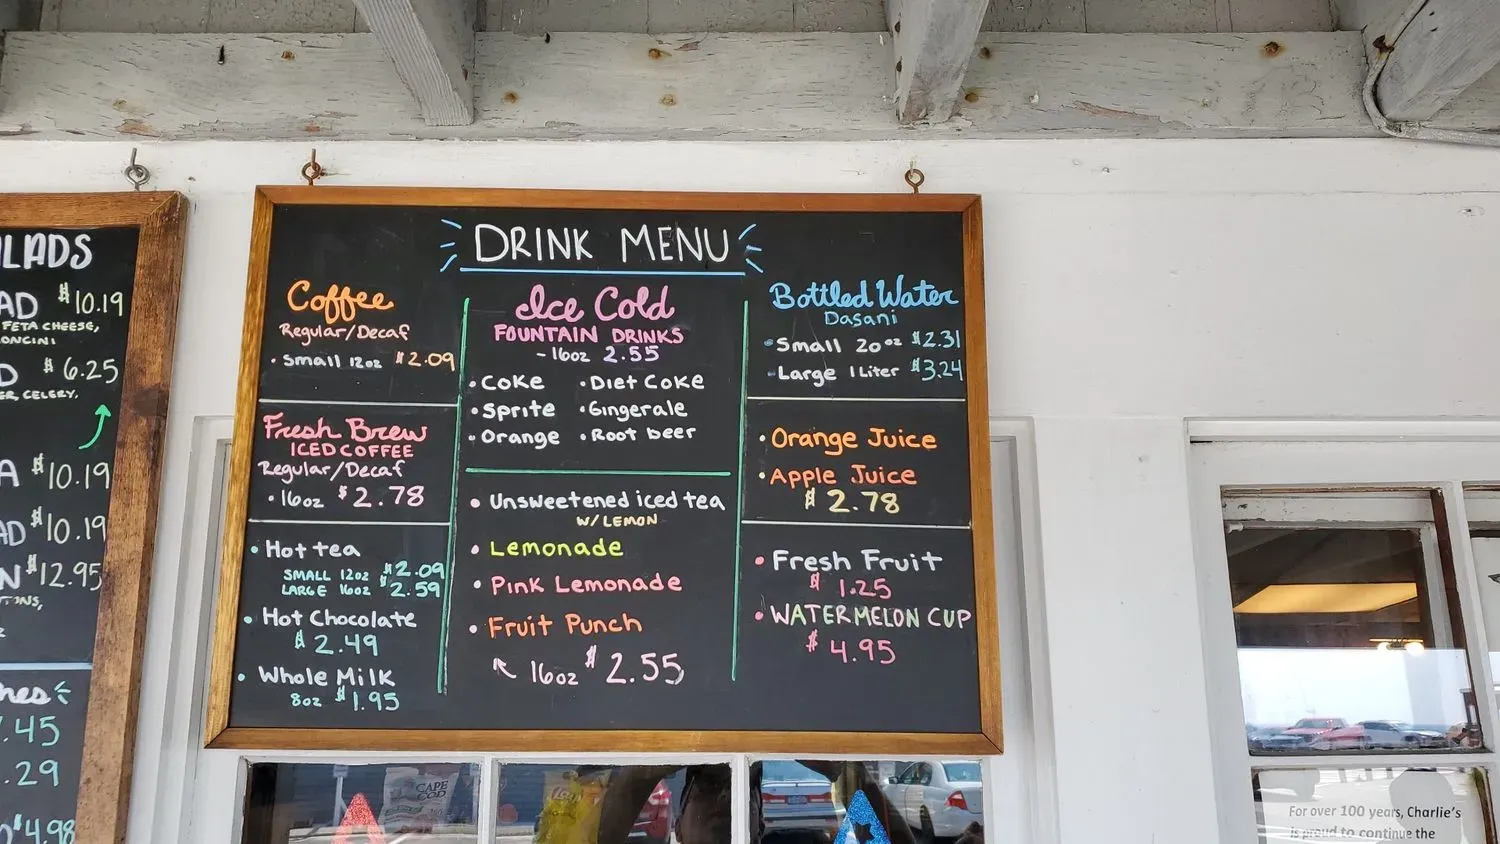 LADS
AD $10.19
FETA CHEESE,
ONCINI
D $6.25
ER, CELERY,
A $10.19
AD $10.19
N $12.95
hes
.45
.29
$4.98
DRINK MENU
Coffee
Regular/Decaf
• Small 12oz $2.09
Fresh Brew
ICED COFFEE
Regular/Decaf
• 16oz $2.78
• Hot tea
SMALL 12oz $2.09
LARGE 16oz $2.59
• Hot Chocolate
$2.49
• Whole Milk
8oz $1.95
Ice Cold
FOUNTAIN DRINKS
- 16oz 2.55
• Coke • Diet Coke
• Sprite • Gingerale
• Orange • Root beer
• Unsweetened iced tea
W/ LEMON
• Lemonade
• Pink Lemonade
• Fruit Punch
16oz $2.55
Bottled Water
Dasani
• Small 20oz $2.31
• Large 1 Liter $3.24
• Orange Juice
• Apple Juice
$2.78
• Fresh Fruit
$1.25
• WATERMELON CUP
$4.95
CAPE
COD
For over 100 years, Charlie's
is proud to continue the